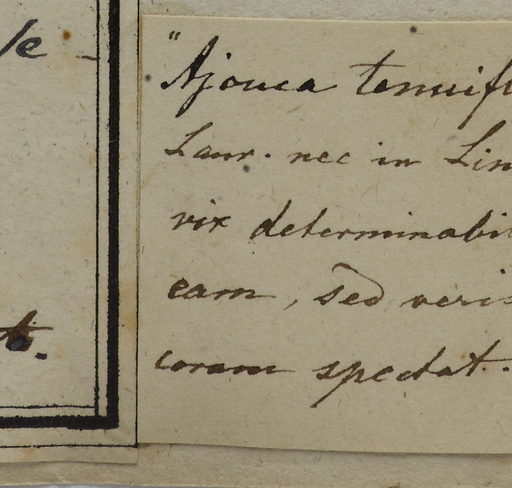 "Ajouea tenuifl
Laur. nec in Lin
vix determinabi
eam, sed veris
coram spectat.